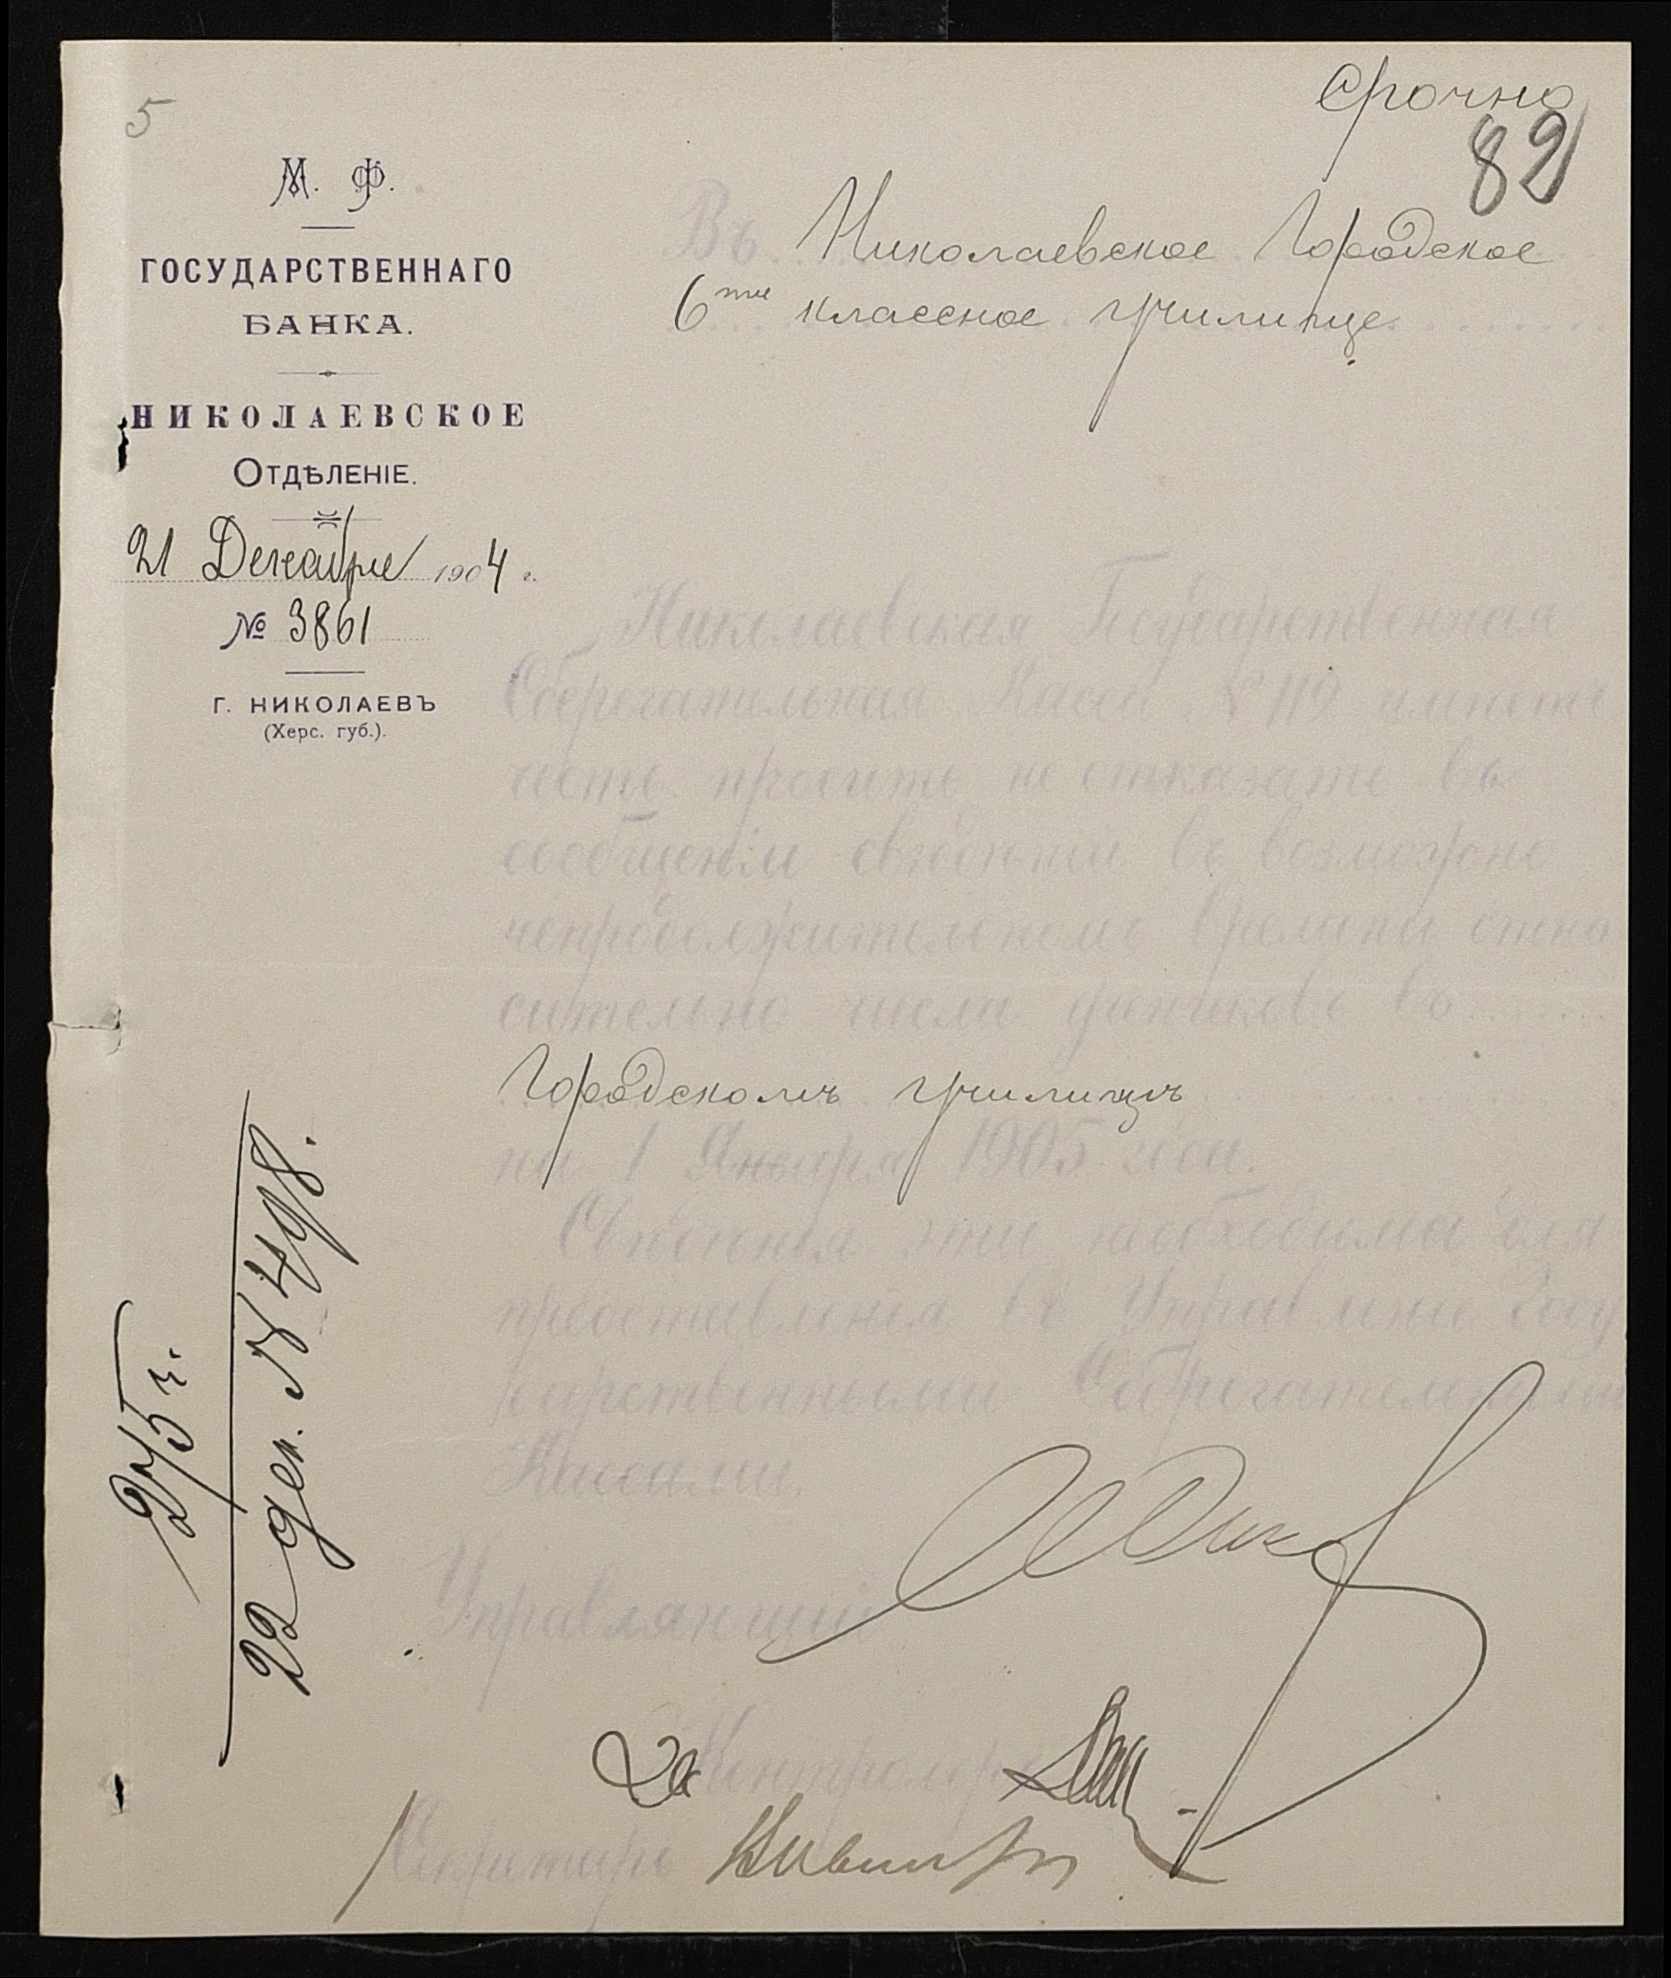 5
Срочно
82
М. Ф.
ГОСУДАРСТВЕННАГО
БАНКА.
НИКОЛАЕВСКОЕ
ОТДѢЛЕНІЕ.
21 Декабря 1904 г.
№ 3861
Г. НИКОЛАЕВЪ
(Херс. губ.).
Въ Николаевское Городское
6ти классное училище.
Николаевская Государственная
Сберегательная Касса № 119 имѣетъ
честь просить не отказать въ
сообщеніи свѣдѣній въ возможно
непродолжительномъ времени отно
сительно числа учениковъ въ
Городскомъ училищѣ
на 1 Января 1905 года.
Свѣдѣнія эти необходимы для
представленія въ Управленіе Госу
дарственными Сберегательными
Кассами.
Управляющій
За Контролера
Секретарь
22 дек. № 498.